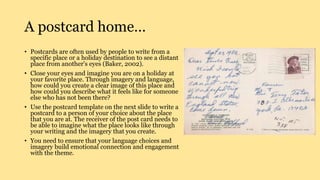 A postcard home…
• Postcards are often used by people to write from a
specific place or a holiday destination to see a distant
place from another's eyes (Baker, 2002).
• Close your eyes and imagine you are on a holiday at
your favorite place. Through imagery and language,
how could you create a clear image of this place and
how could you describe what it feels like for someone
else who has not been there?
• Use the postcard template on the next slide to write a
postcard to a person of your choice about the place
that you are at. The receiver of the post card needs to
be able to imagine what the place looks like through
your writing and the imagery that you create.
• You need to ensure that your language choices and
imagery build emotional connection and engagement
with the theme.